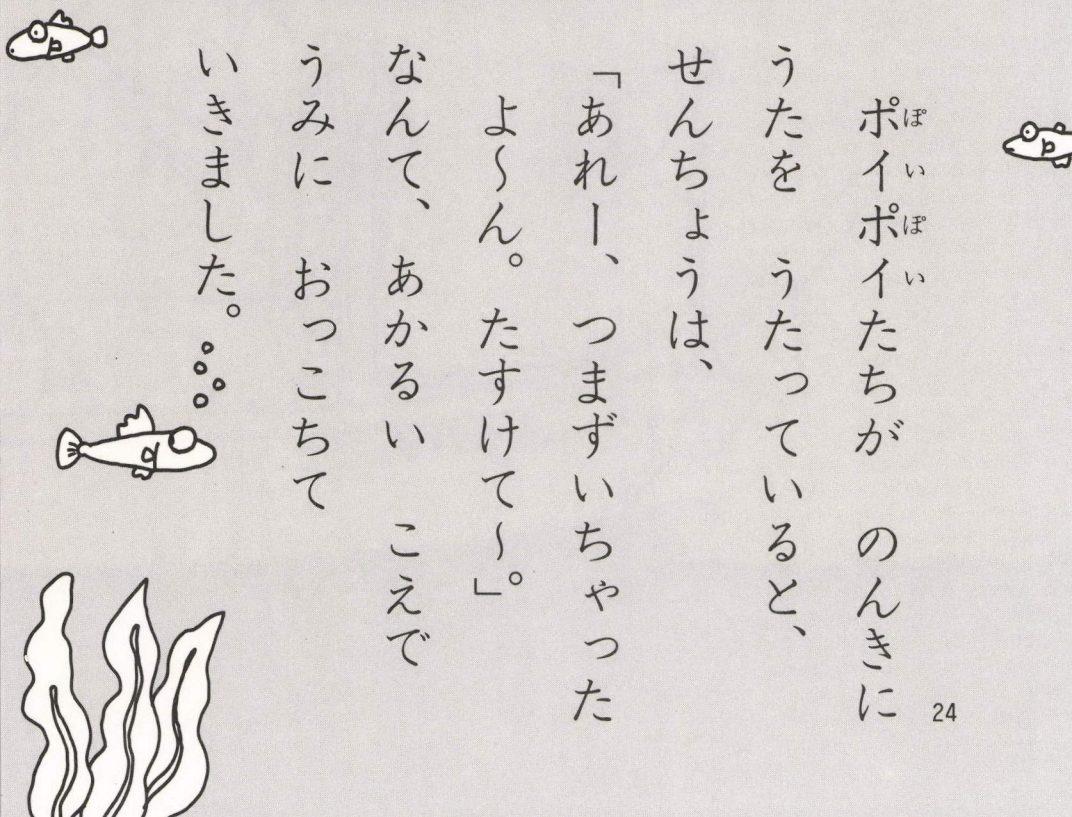 ポイポイたちが　のんきに
うたを　うたっていると、
せんちょうは、
「あれー、つまずいちゃった
よ〜ん。たすけて〜。」
なんて、あかるい　こえで
うみに　おっこちて
いきました。
ぽいぽい
24